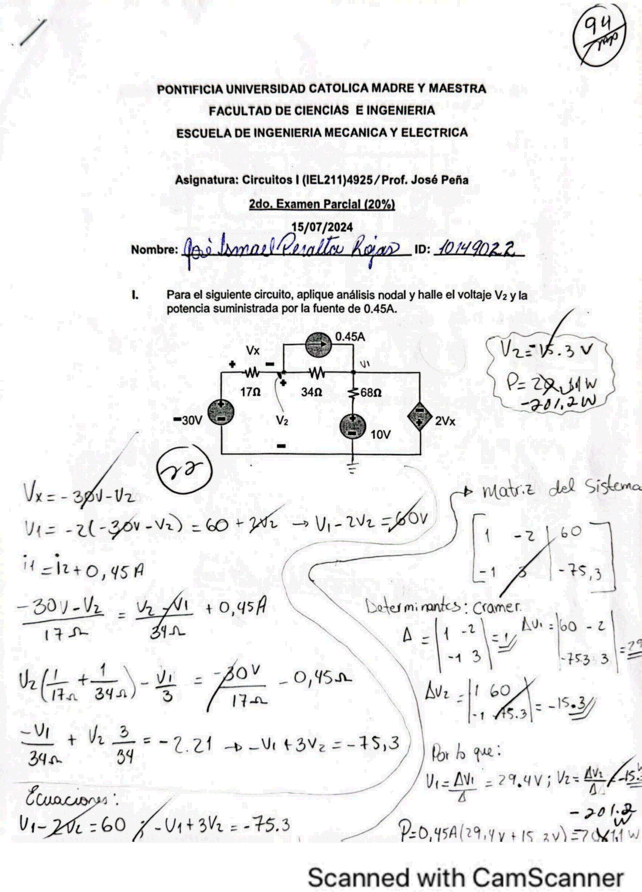 94
PONTIFICIA UNIVERSIDAD CATOLICA MADRE Y MAESTRA
FACULTAD DE CIENCIAS E INGENIERIA
ESCUELA DE INGENIERIA MECANICA Y ELECTRICA
Asignatura: Circuitos I (IEL211)4925/Prof. José Peña
2do. Examen Parcial (20%)
15/07/2024
Nombre: José Ismael Peralta Rojas ID: 10149022
I. Para el siguiente circuito, aplique análisis nodal y halle el voltaje V₂ y la
potencia suministrada por la fuente de 0.45A.
0.45A
Vx
V1
+ − + −
17Ω 34Ω 68Ω
−30V V₂ 10V 2Vx
V2=-15.3 V
P= W
-201.2W
22
Vx = -30V-V2
V1 = -2(-30V-V2) = 60 + 2V2 → V1-2V2 = 60V
i1 = i2 + 0,45A
-30V-V2/17Ω = V2-V1/34Ω + 0,45A
V2(1/17Ω + 1/34Ω) - V1/3 = -30V/17Ω - 0,45Ω
-V1/34Ω + V2 3/34 = -2.21 → -V1+3V2 = -75,3
Ecuaciones:
V1-2V2 = 60 ; -V1+3V2 = -75.3
Matriz del Sistema
[1 -2 | 60
-1 3 | -75,3]
Determinantes: Cramer.
Δ = |1 -2
-1 3| = 1
ΔV1 = |60 -2
-75.3 3| = 29
ΔV2 = |1 60
-1 -75.3| = -15.3
Por lo que:
V1 = ΔV1/Δ = 29.4V ; V2 = ΔV2/Δ = -15.
-201.2
W
P=0,45A(29,4V+15.3V)= W
Scanned with CamScanner